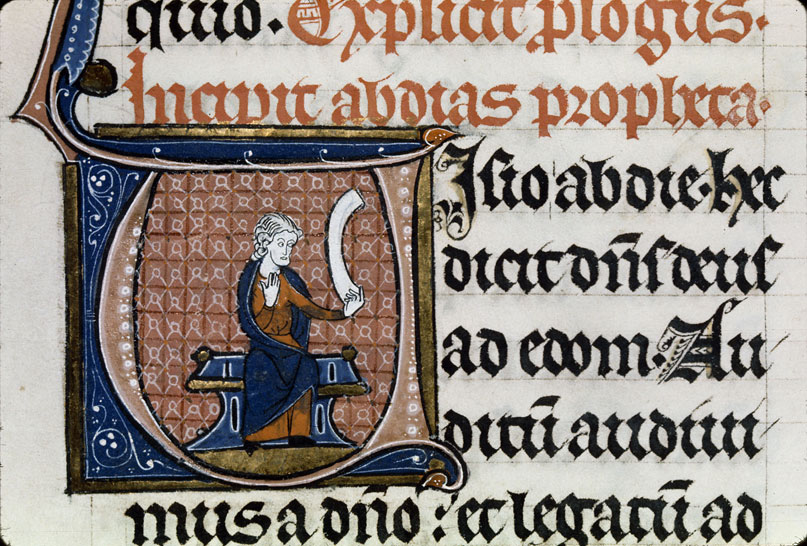 quio. Explicit plogus.
Incipit abdias propheta.
Visio abdie. hec
dicit dn̄s deus
ad edom. Au
ditū audiui
mus a dn̄o: et legatū ad